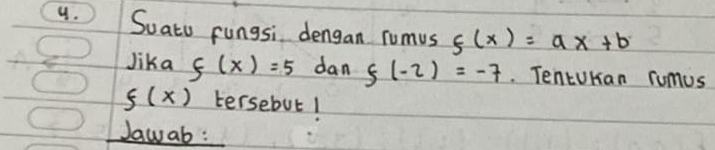 4. Suatu fungsi dengan rumus f(x) = ax + b
Jika f(x) = 5 dan f(-2) = -7. Tentukan rumus
f(x) tersebut!
Jawab: